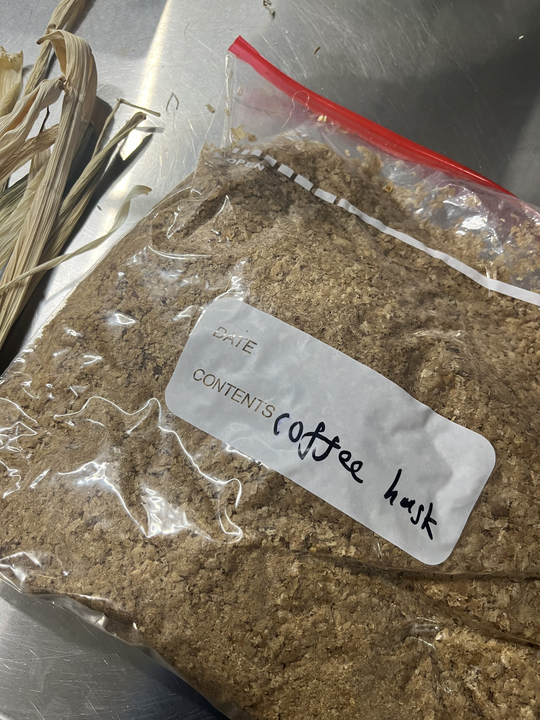 DATE
CONTENTS coffee husk